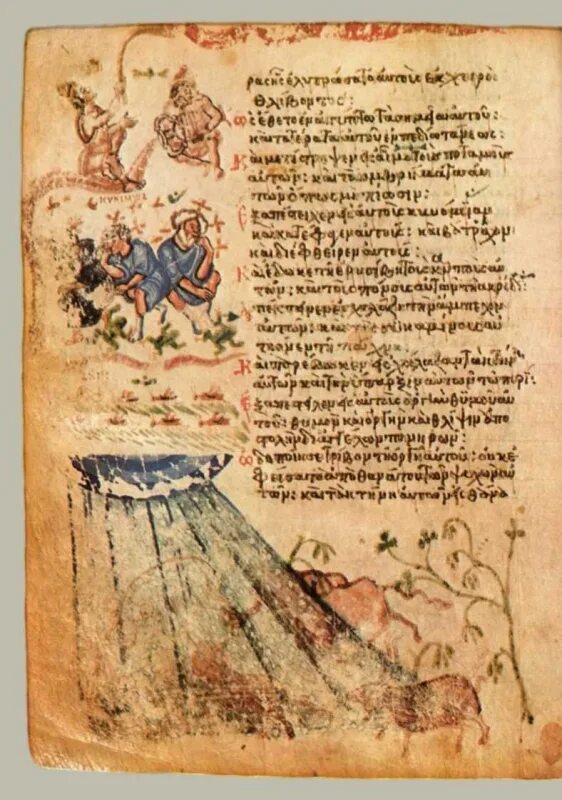 ρας ἧς ἐλυτρώσατο αὐτοὺς ἐκ χειρὸς
θλίβοντος:
ὡς ἔθετο ἐν αἰγύπτω τὰ σημεῖα αὐτοῦ:
καὶ τὰ τέρατα αὐτοῦ ἐν πεδίω τάνεως:
Καὶ μετέστρεψεν εἰς αἷμα τοὺς ποταμοὺς
αὐτῶν: καὶ τὰ ὀμβρήματα αὐ
τῶν ὅπως μὴ πίωσιν:
Ἐξαπέστειλεν εἰς αὐτοὺς κυνόμυιαν
καὶ κατέφαγεν αὐτούς: καὶ βάτραχον
καὶ διέφθειρεν αὐτούς:
Καὶ ἔδωκεν τῆ ἐρυσίβη τοὺς καρποὺς αὐ
τῶν: καὶ τοὺς πόνους αὐτῶν τῆ ἀκρίδι:
Ἀπέκτεινεν ἐν χαλάζη τὴν ἄμπελον
αὐτῶν: καὶ τὰς συκαμίνους αὐ
τῶν ἐν τῆ πάχνη:
Καὶ παρέδωκεν εἰς χάλαζαν τὰ κτήνη
αὐτῶν καὶ τὴν ὕπαρξιν αὐτῶν τῶ πυρί:
Ἐξαπέστειλεν εἰς αὐτοὺς ὀργὴν θυμοῦ αὐ
τοῦ: θυμὸν καὶ ὀργὴν καὶ θλῖψιν ἀπο
στολὴν δι ἀγγέλων πονηρῶν:
ὡδοποίησε τρίβον τῆ ὀργῆ αὐτοῦ: οὐκ ἐ
φείσατο ἀπὸ θανάτου τῶν ψυχῶν αὐ
τῶν: καὶ τὰ κτήνη αὐτῶν εἰς θάνα